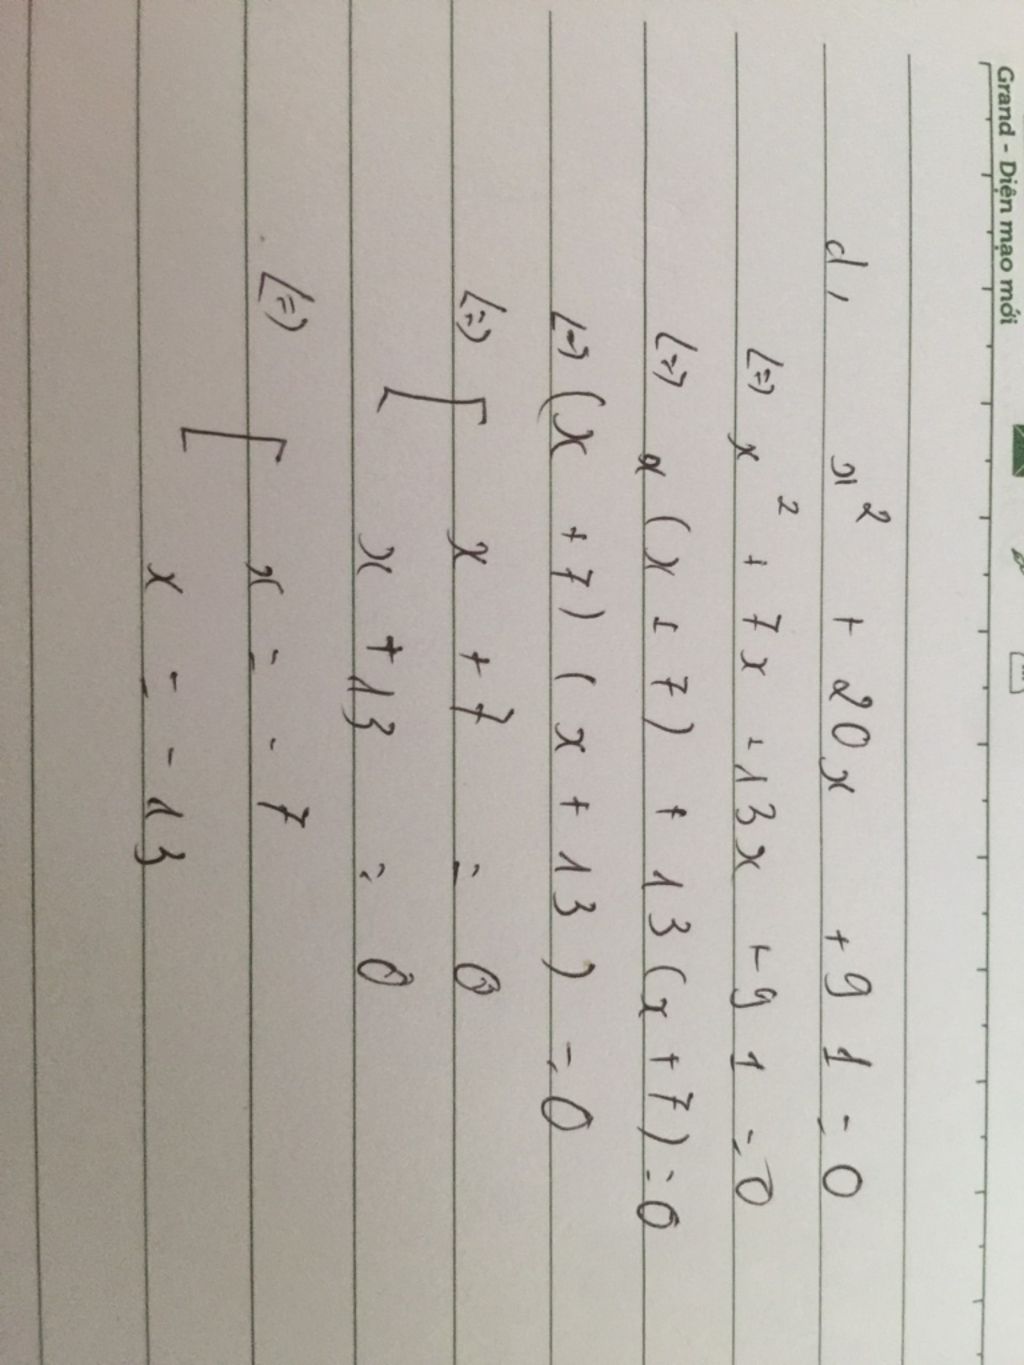 Grand - Diện mạo mới
d, x² + 20x + 91 = 0
(=) x² + 7x + 13x + 91 = 0
(=) x (x + 7) + 13(x + 7) = 0
(=) (x + 7) (x + 13) = 0
(=) [ x + 7 = 0
x + 13 = 0
(=) [ x = - 7
x = - 13